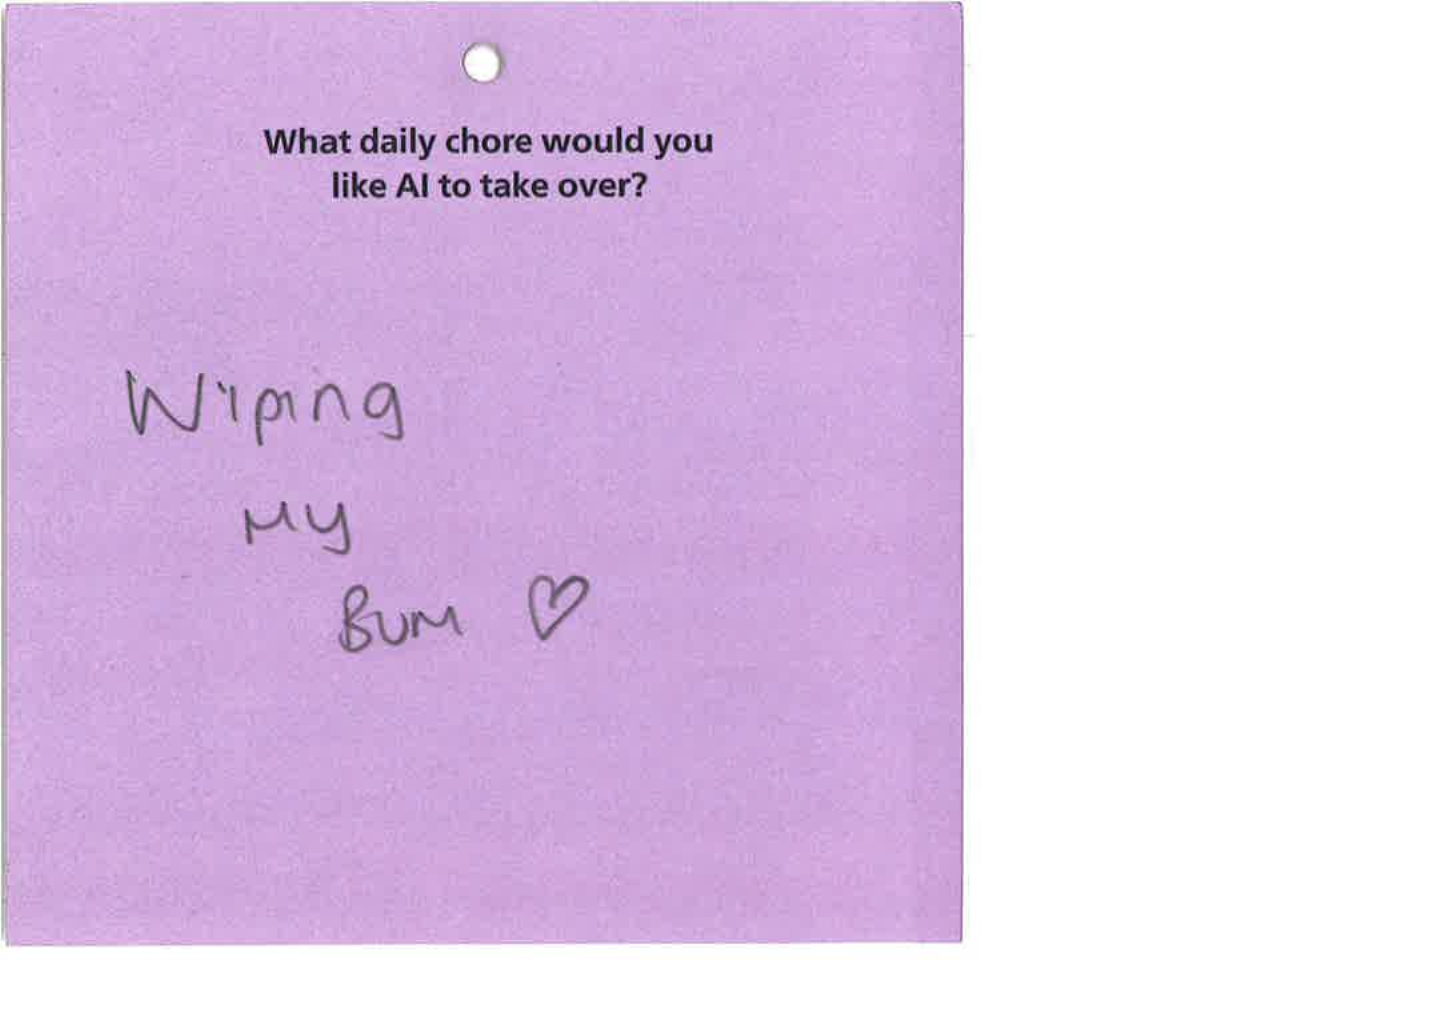 What daily chore would you
like AI to take over?
Wiping
My
Bum ♡